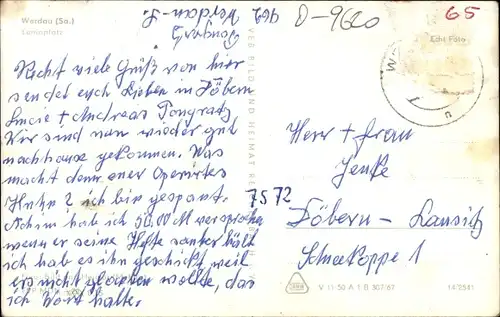 Werdau (Sa.)
Leninplatz
962 Werdau
D-9620
65
Echt Foto
Recht viele Grüß von hier
sendet euch Lieben in Döbern
Lucie + Andreas Pongratz
Wir sind nun wieder gut
nachhause gekommen. Was
macht denn euer Operirtes
Huhn? ich bin gespant.
Achim hab ich 50.00 M versprochen
wenn er seine Hefte sauber hält
ich hab es ihn geschickt weil
er's nicht glauben wollte, das
ich Wort halte.
VEB BILD UND HEIMAT
Herr + Frau
Jenke
7572
Döbern - Lausitz
Schneekoppe 1
V 11-50 A 1 B 307/67
14/2541